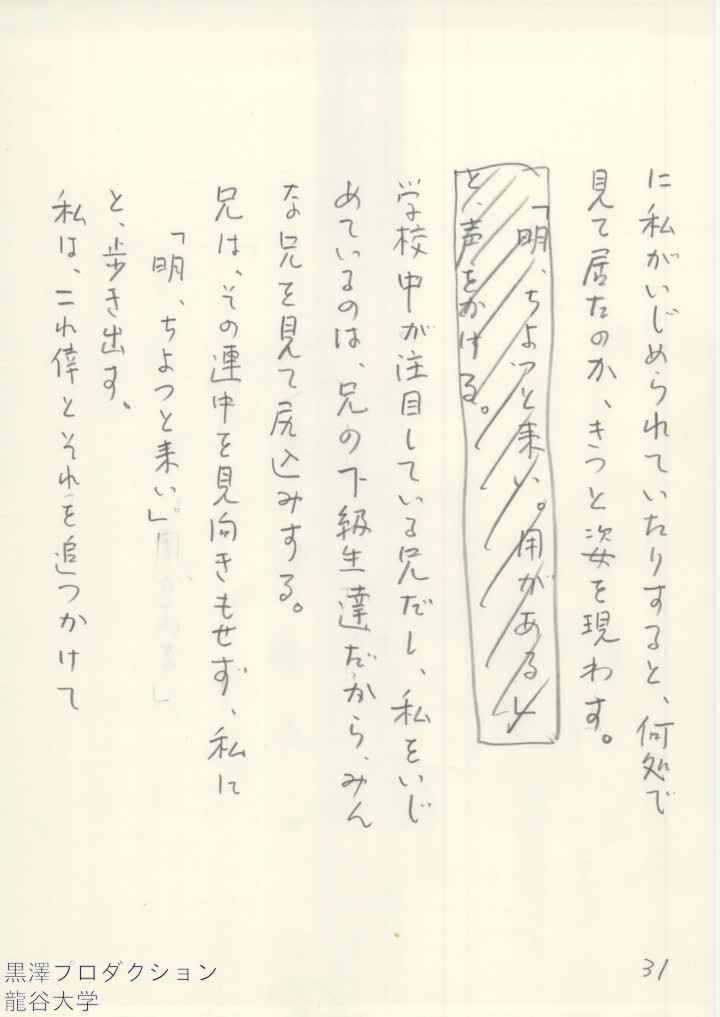 に私がいじめられていたりすると、何処で
見て居たのか、きっと姿を現わす。
「明、ちょっと来い。用がある」
と、声をかける。
学校中が注目している兄だし、私をいじ
めているのは、兄の下級生達だから、みん
な兄を見て尻込みする。
兄は、その連中を見向きもせず、私に
「明、ちよつと来い」
と、歩き出す。
私は、これ倖とそれを追つかけて
31
黒澤プロダクション
龍谷大学